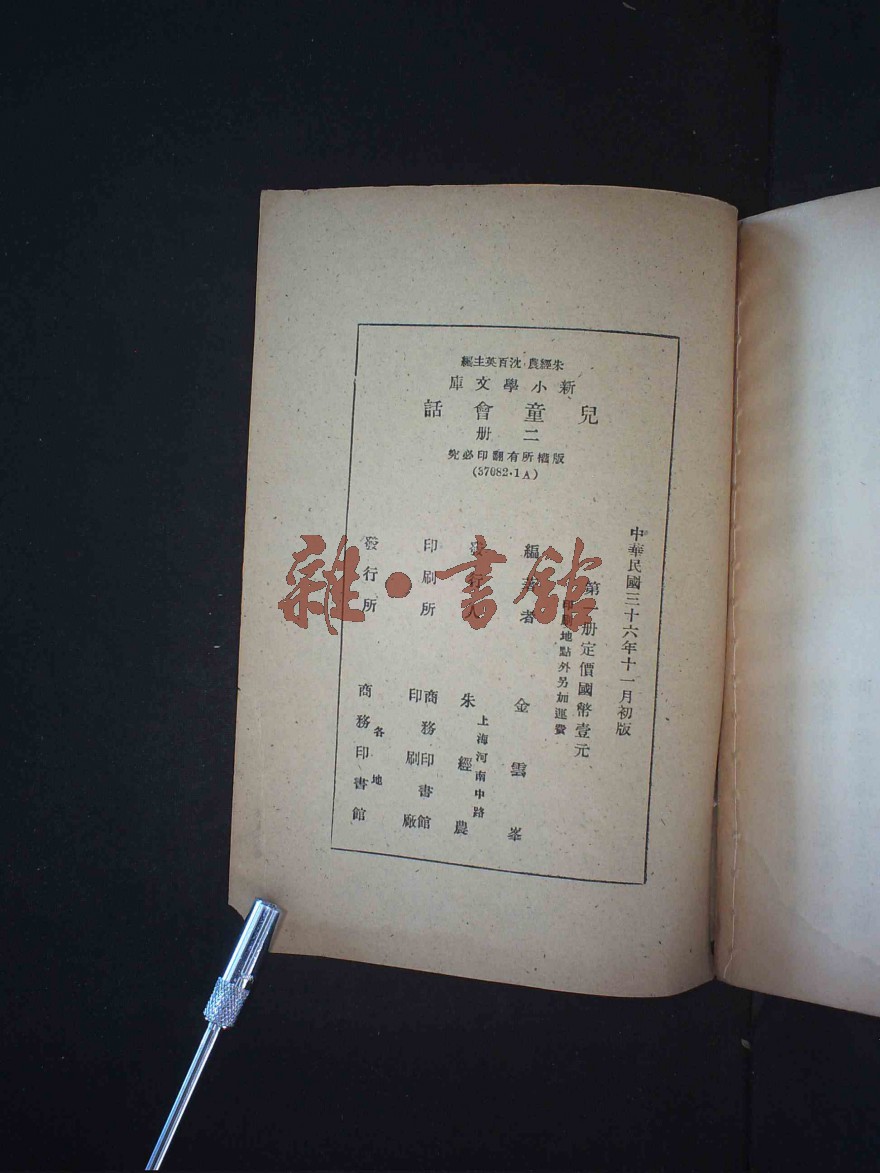 朱經農 沈百英主編
新小學文庫
兒童會話
二册
版權所有翻印必究
(37082·1A)
中華民國三十六年十一月初版
第一册定價國幣壹元
印刷地點外另加運費
編著者 金雲峯
發行人 朱經農
上海河南中路
印刷所 商務印書館
印刷廠
發行所 商務印書館
各地
雜·書館